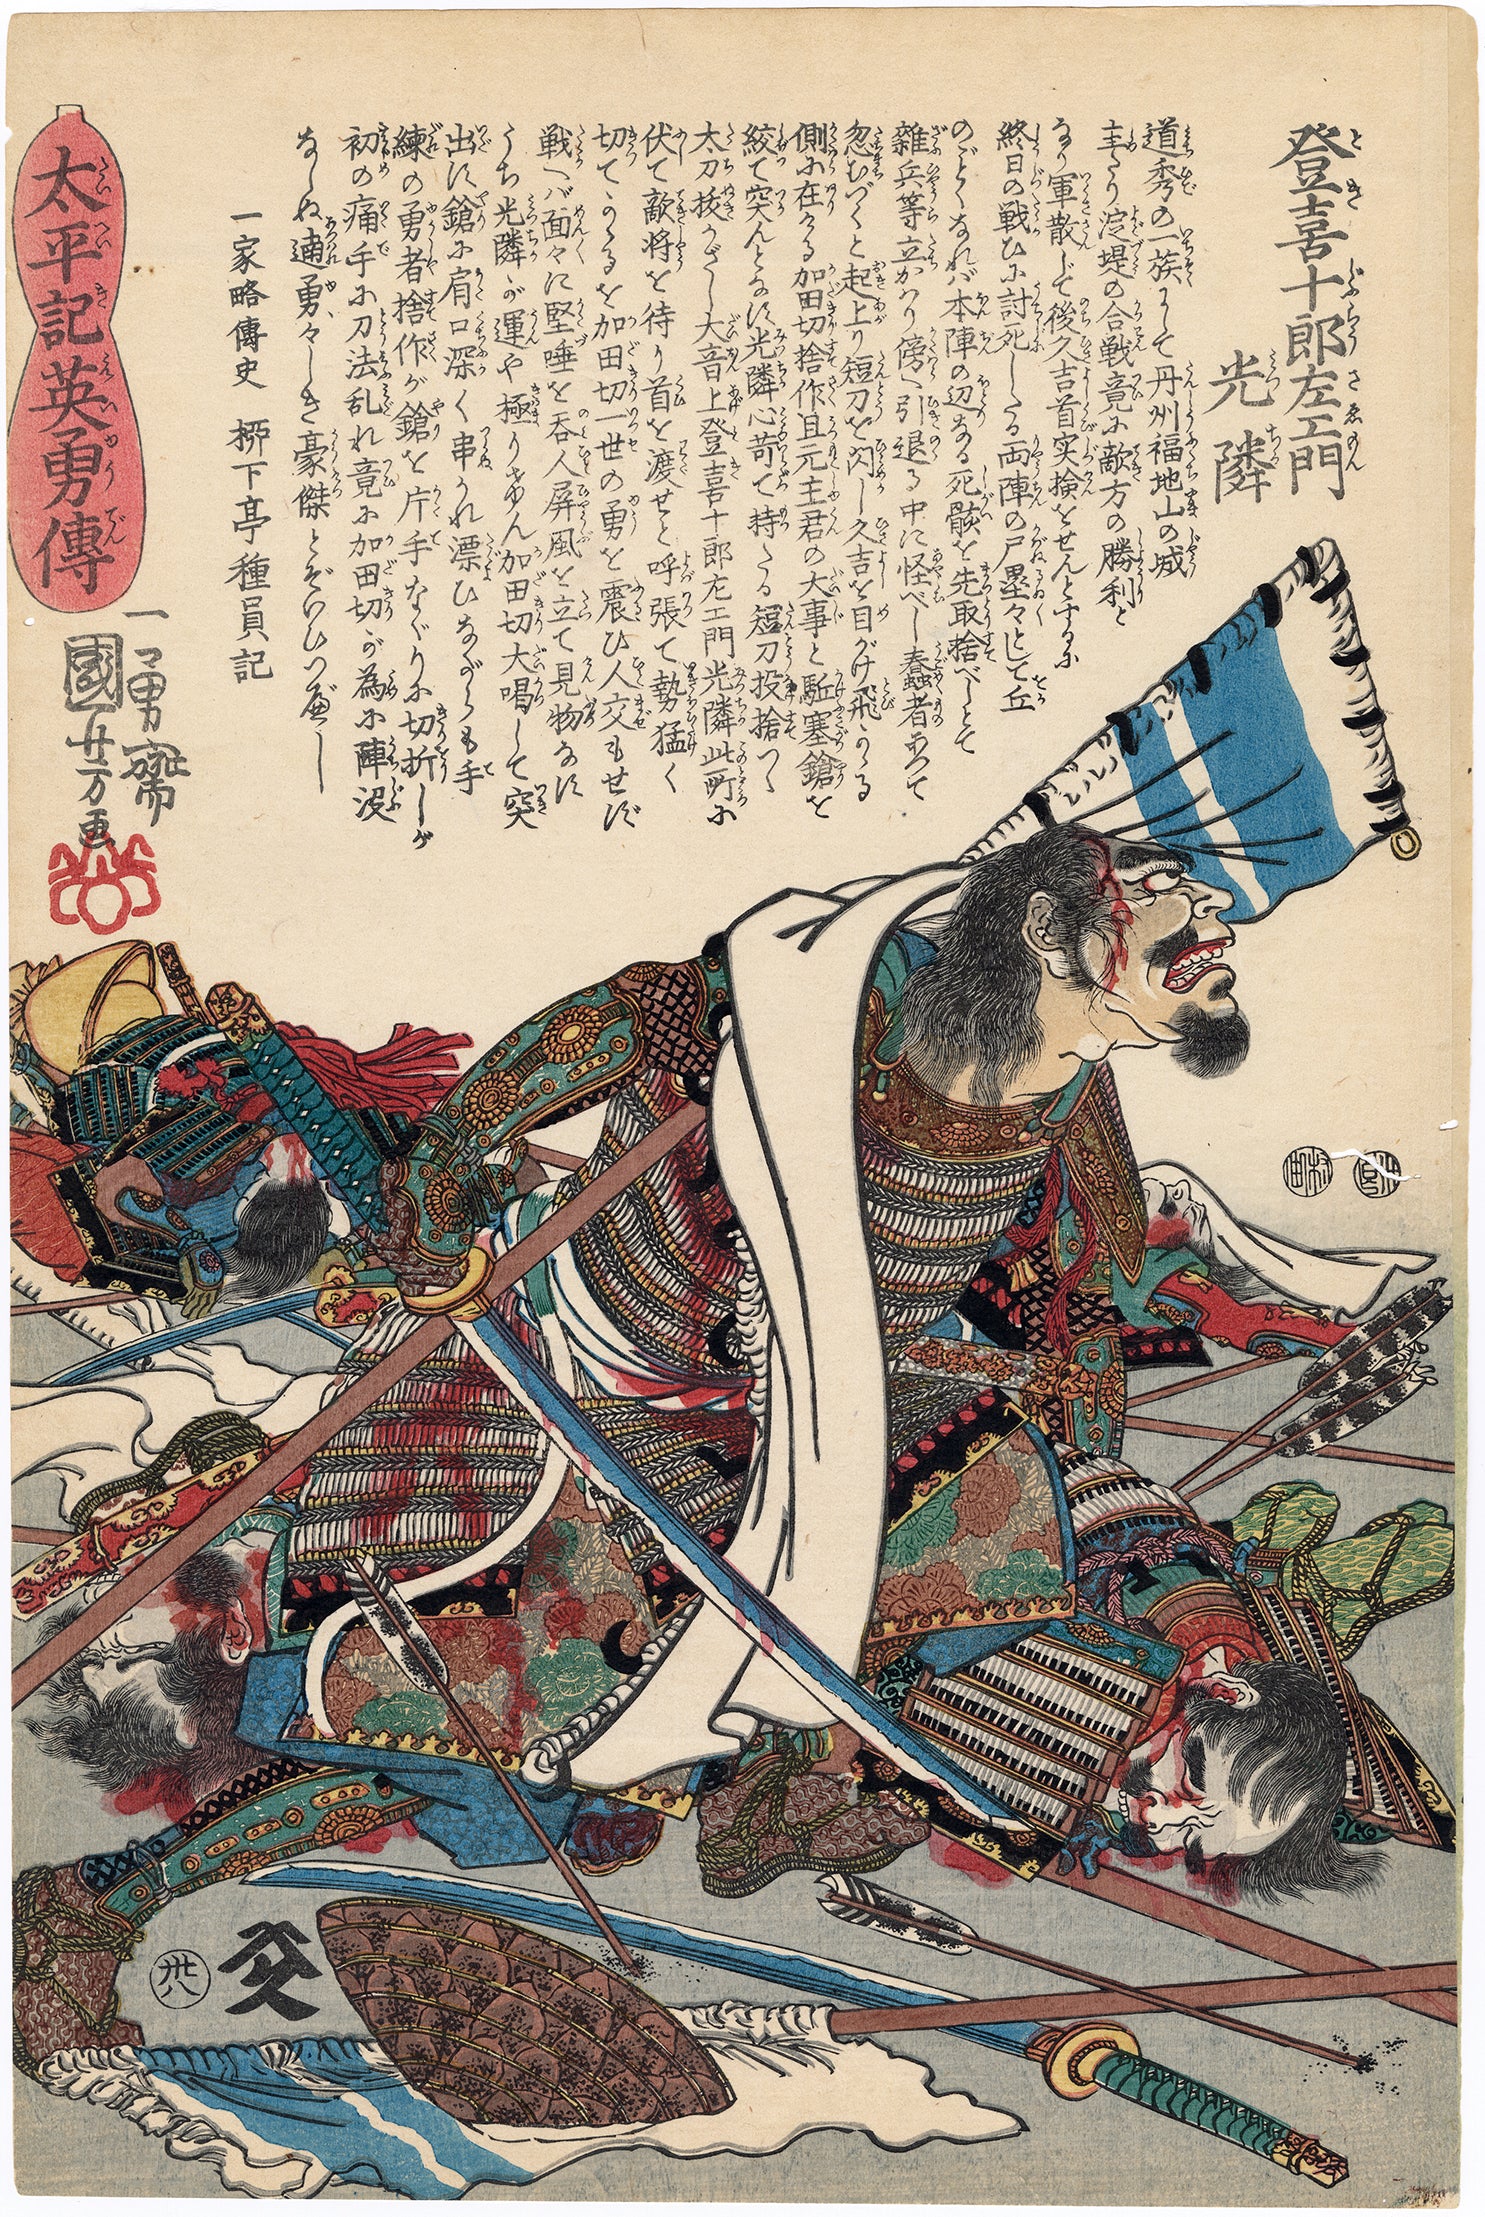 登喜十郎左エ門
光隣
道秀の一族にして丹州福地山の城
主たり淀堤の合戦竟に敵方の勝利と
なり軍散じて後久吉首実検をせんとするに
終日の戦ひに討死したる両陣の尸塁々として丘
のごとくなれバ本陣の辺なる死骸を先取捨べしとて
雑兵等立かゝり傍へ引退る中に怪べし蠢者あつて
忽むつくと起上り短刀を閃し久吉を目がけ飛かゝる
側に在ける加田切捨作且元主君の大事と駈塞鎗を
絞て突んとなす光隣心苛て持たる短刀投捨つゝ
太刀抜かざし大音上登喜十郎左エ門光隣此所に
伏て敵将を待り首を渡せと呼張て勢猛く
切てかゝるを加田切一世の勇を震ひ人交もせず
戦へバ面々に堅唾を呑人屏風を立て見物なす
うち光隣が運や極りけん加田切大喝して突
出す鎗に肩口深く串かれ漂ひながらも手
練の勇者捨作が鎗を片手なぐりに切折しが
初の痛手に刀法乱れ竟に加田切が為に陣没
なしぬ適勇々しき豪傑とぞいひつべし
一家略傳史 栁下亭種員記
太平記英勇傳
一勇齋
國芳画
卅八